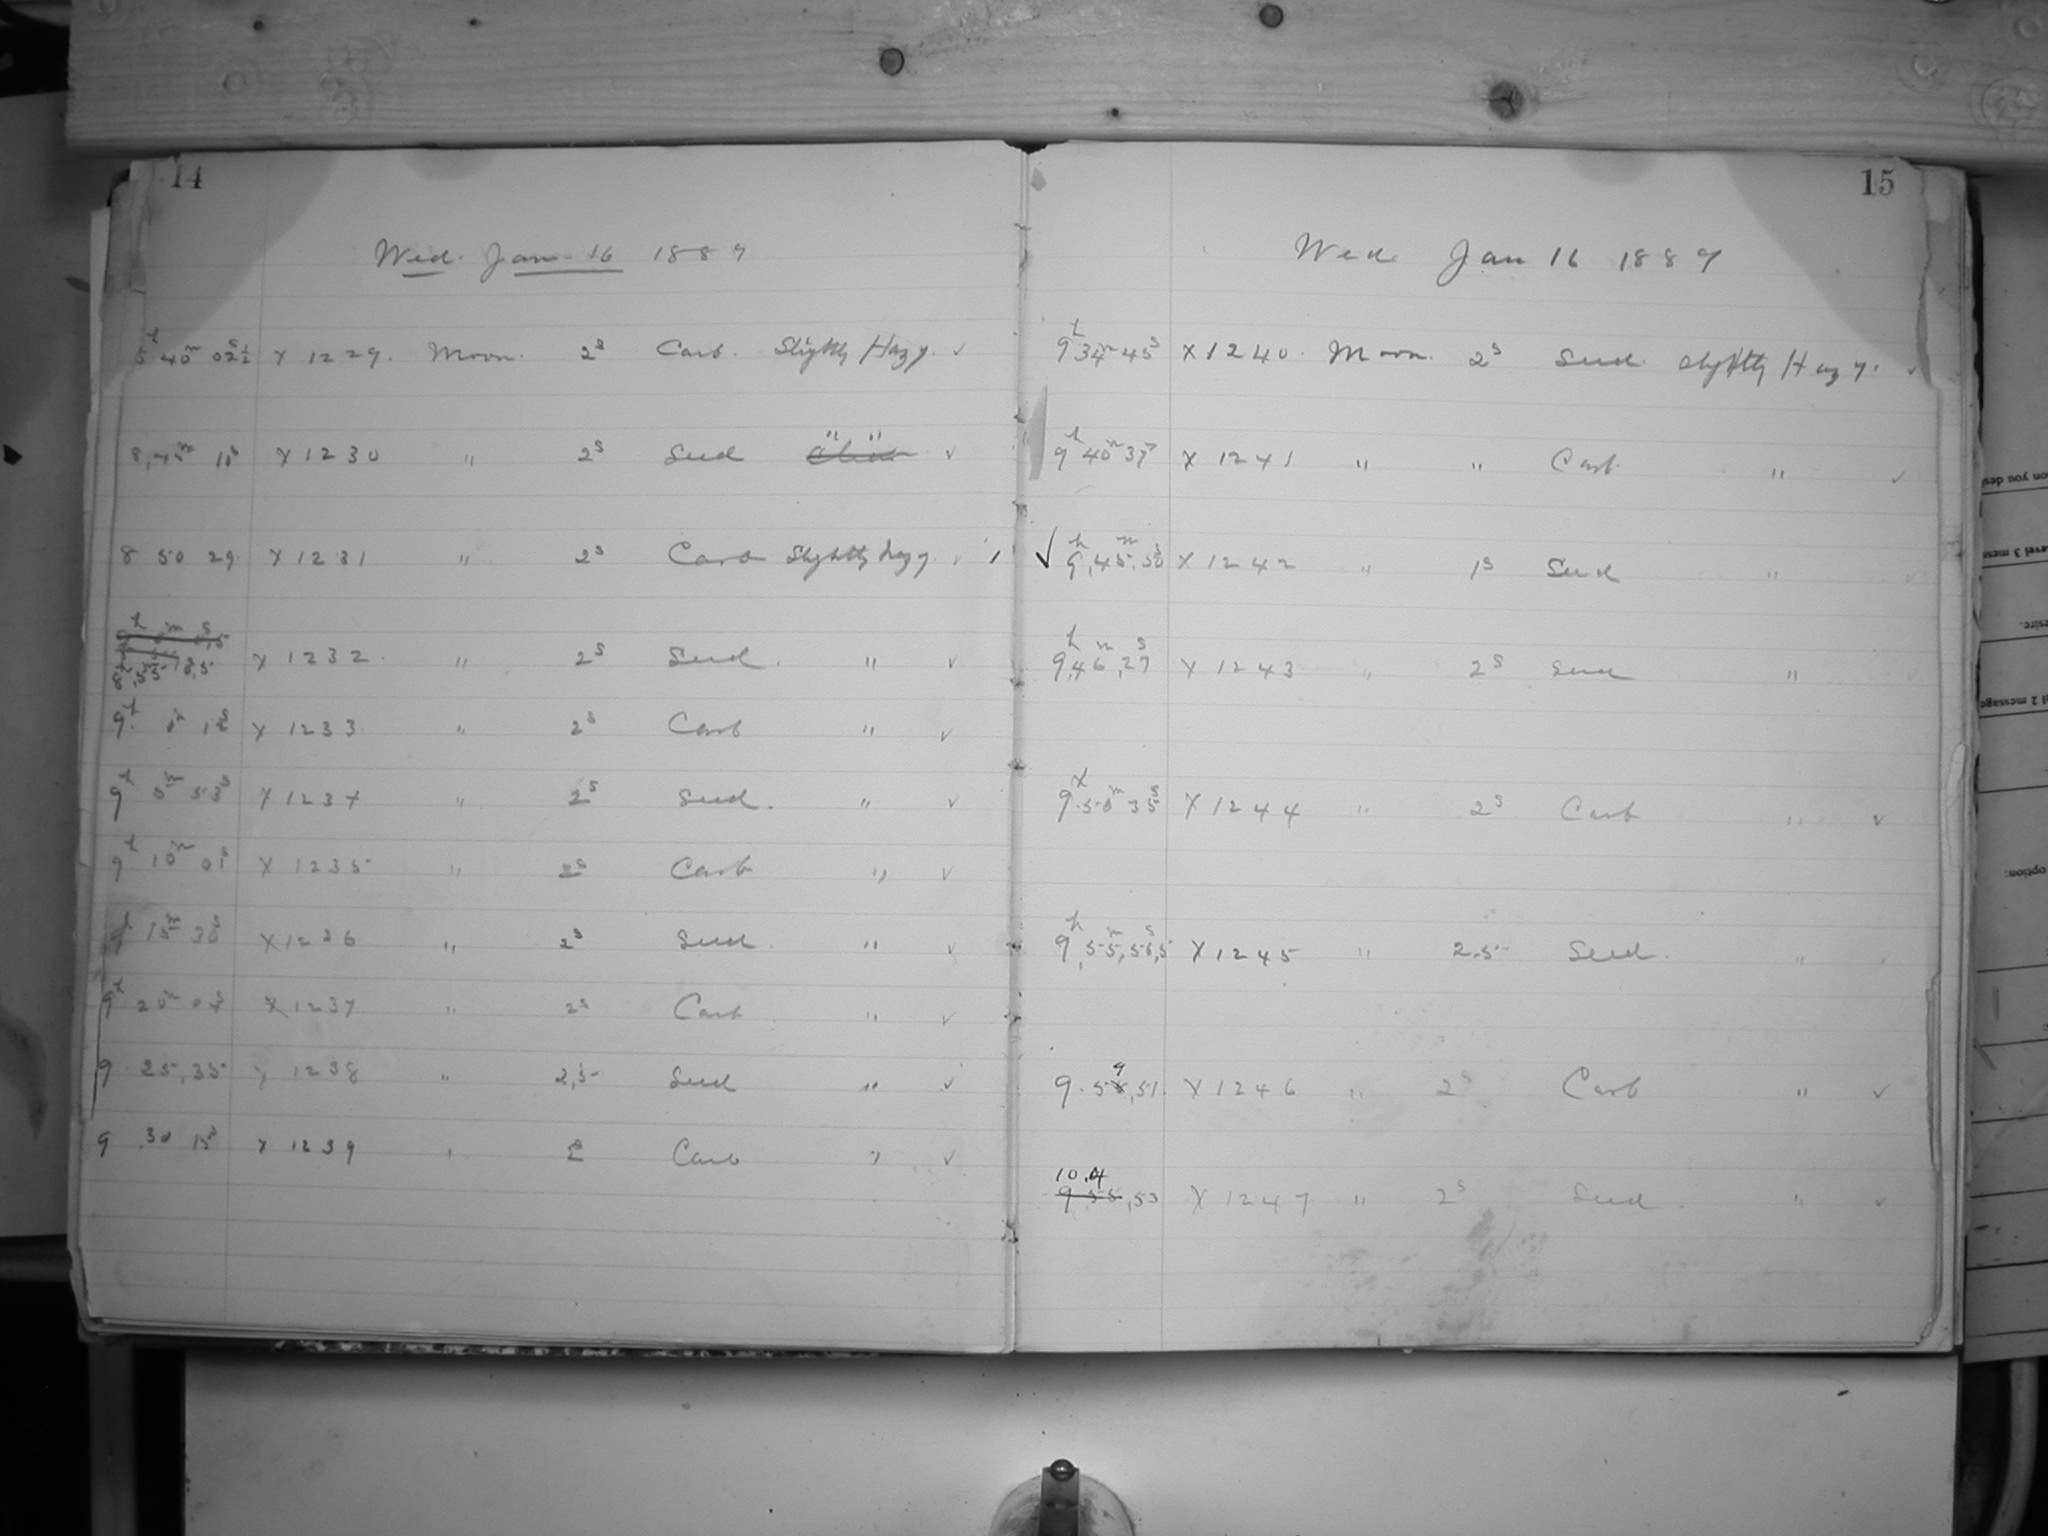 14
Wed. Jan 16 1889
5h 40m 02½s X 1229. Moon. 2s Carb. Slightly Hazy. ✓
8, 45m 10s X 1230 " 2s Seed " " ✓
8 50 29 X 1231 " 2s Carb Slightly hazy. ✓
8h, 55m 18,5s X 1232. " 2s Seed. " ✓
9h. 0m 12s X 1233 " 2s Carb " ✓
9h 5m 53s X 1234 " 2s Seed. " ✓
9h 10m 01s X 1235 " 2s Carb " ✓
9h 15m 30s X 1236 " 2s Seed. " ✓
9h 20m 04s X 1237 " 2s Carb. " ✓
9 25, 35 X 1238 " 2,5 Seed " ✓
9 30 15s X 1239 " 2 Carb " ✓
15
Wed. Jan 16 1889
9h 34m 45s X 1240. Moon. 2s Seed. Slightly Hazy. ✓
9h 40m 37s X 1241 " " Carb. " ✓
✓ 9h, 45m, 50s X 1242 " 1s Seed " ✓
9h, 46m, 27s X 1243 " 2s Seed "
9h 50m 35s X 1244 " 2s Carb " ✓
9h, 55m, 56,5s X 1245 " 2,5 Seed. "
9. 59, 51. X 1246 " 2s Carb " ✓
10.4
9,55,53 X 1247 " 2s Seed. " ✓